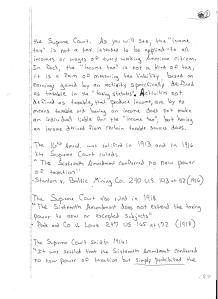 the Supreme Court. As you will see, the "income
tax" is not a tax intended to be applied to all
incomes or wages of every working American citizen.
In fact, the "income tax" is not a kind of tax,
it is a form of measuring tax liability based on
earnings gained by an activity specifically defined
as taxable in the "taxing statutes". Activities not
defined as taxable, that produce income, are by no
means taxable and having an income does not make
an individual liable for the "income tax", but having
an income derived from certain taxable sources does.
The 16th Amend. was ratified in 1913, and in 1916
the Supreme Court ruled:
"The Sixteenth Amendment conferred no new power
of taxation"
- Stanton v. Baltic Mining Co. 240 US 103 at 112 (1916)
The Supreme Court also ruled in 1918
"The Sixteenth Amendment does not extend the taxing
power to new or excepted subjects"
- Peck and Co v. Lowe 247 US 165 at 172 (1918)
The Supreme Court said in 1916:
"It was settled that the Sixteenth Amendment conferred
no new power of taxation but simply prohibited the